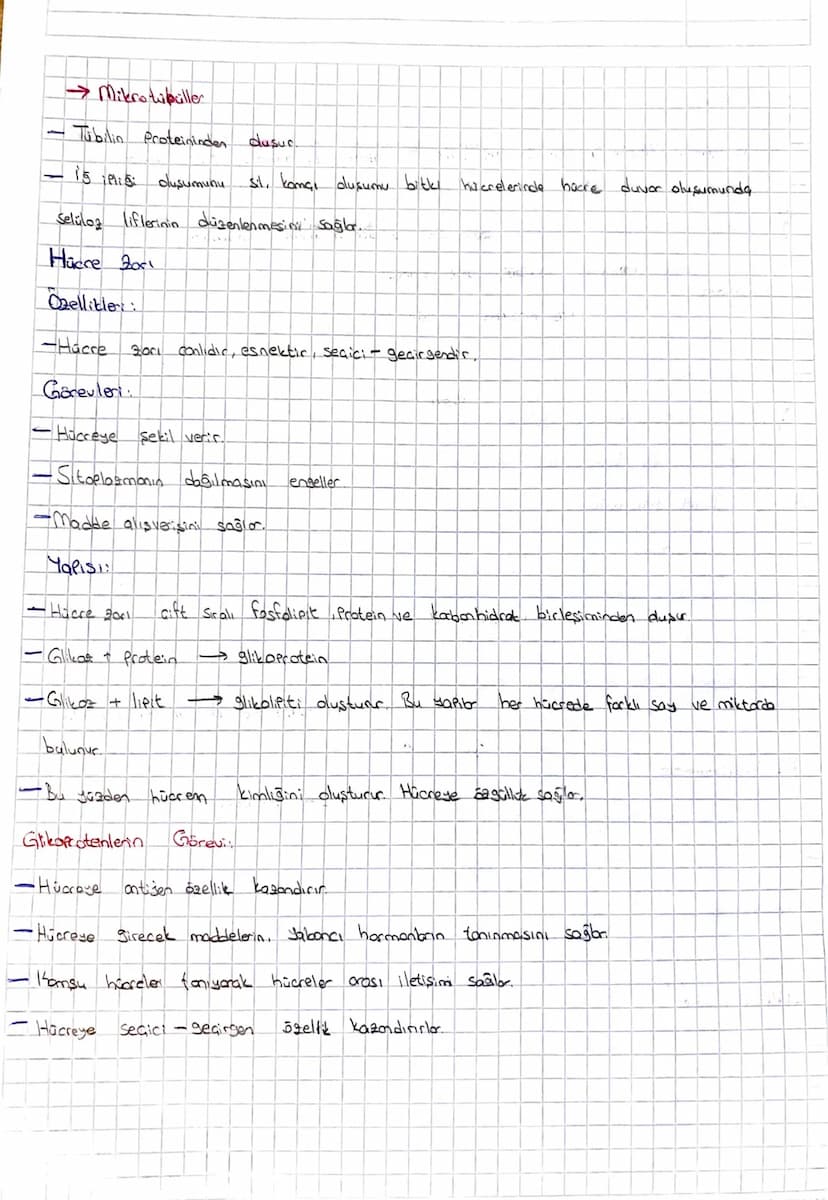 → Mikrotübüller
– Tübilin Proteininden oluşur.
– iğ ipliği oluşumunu sil, kamçı oluşumu bitki hücrelerinde hücre duvar oluşumunda
selüloz liflerinin düzenlenmesini sağlar.
Hücre zarı
Özellikleri:
– Hücre zarı canlıdır, esnektir, seçici – geçirgendir.
Görevleri:
– Hücreye şekil verir.
– Sitoplazmanın dağılmasını engeller
– Madde alışverişini sağlar.
Yapısı:
– Hücre zarı çift sıralı fosfolipit, Protein ve karbonhidrat birleşiminden oluşur.
– Glikoz + protein → glikoprotein
– Glikoz + lipit → glikolipiti oluşturur. Bu yapılar her hücrede farklı say ve miktarda
bulunur.
– Bu yüzden hücrem kimliğini oluşturur. Hücreye özgüllük sağlar.
Glikoprotenlerin Görevi:
– Hücreye antijen özellik kazandırır.
– Hücreye girecek maddelerin, yabancı hormonların tanınmasını sağlar.
– Komşu hücreler tanıyarak hücreler arası iletişimi sağlar.
– Hücreye seçici – geçirgen özellik kazandırırlar.